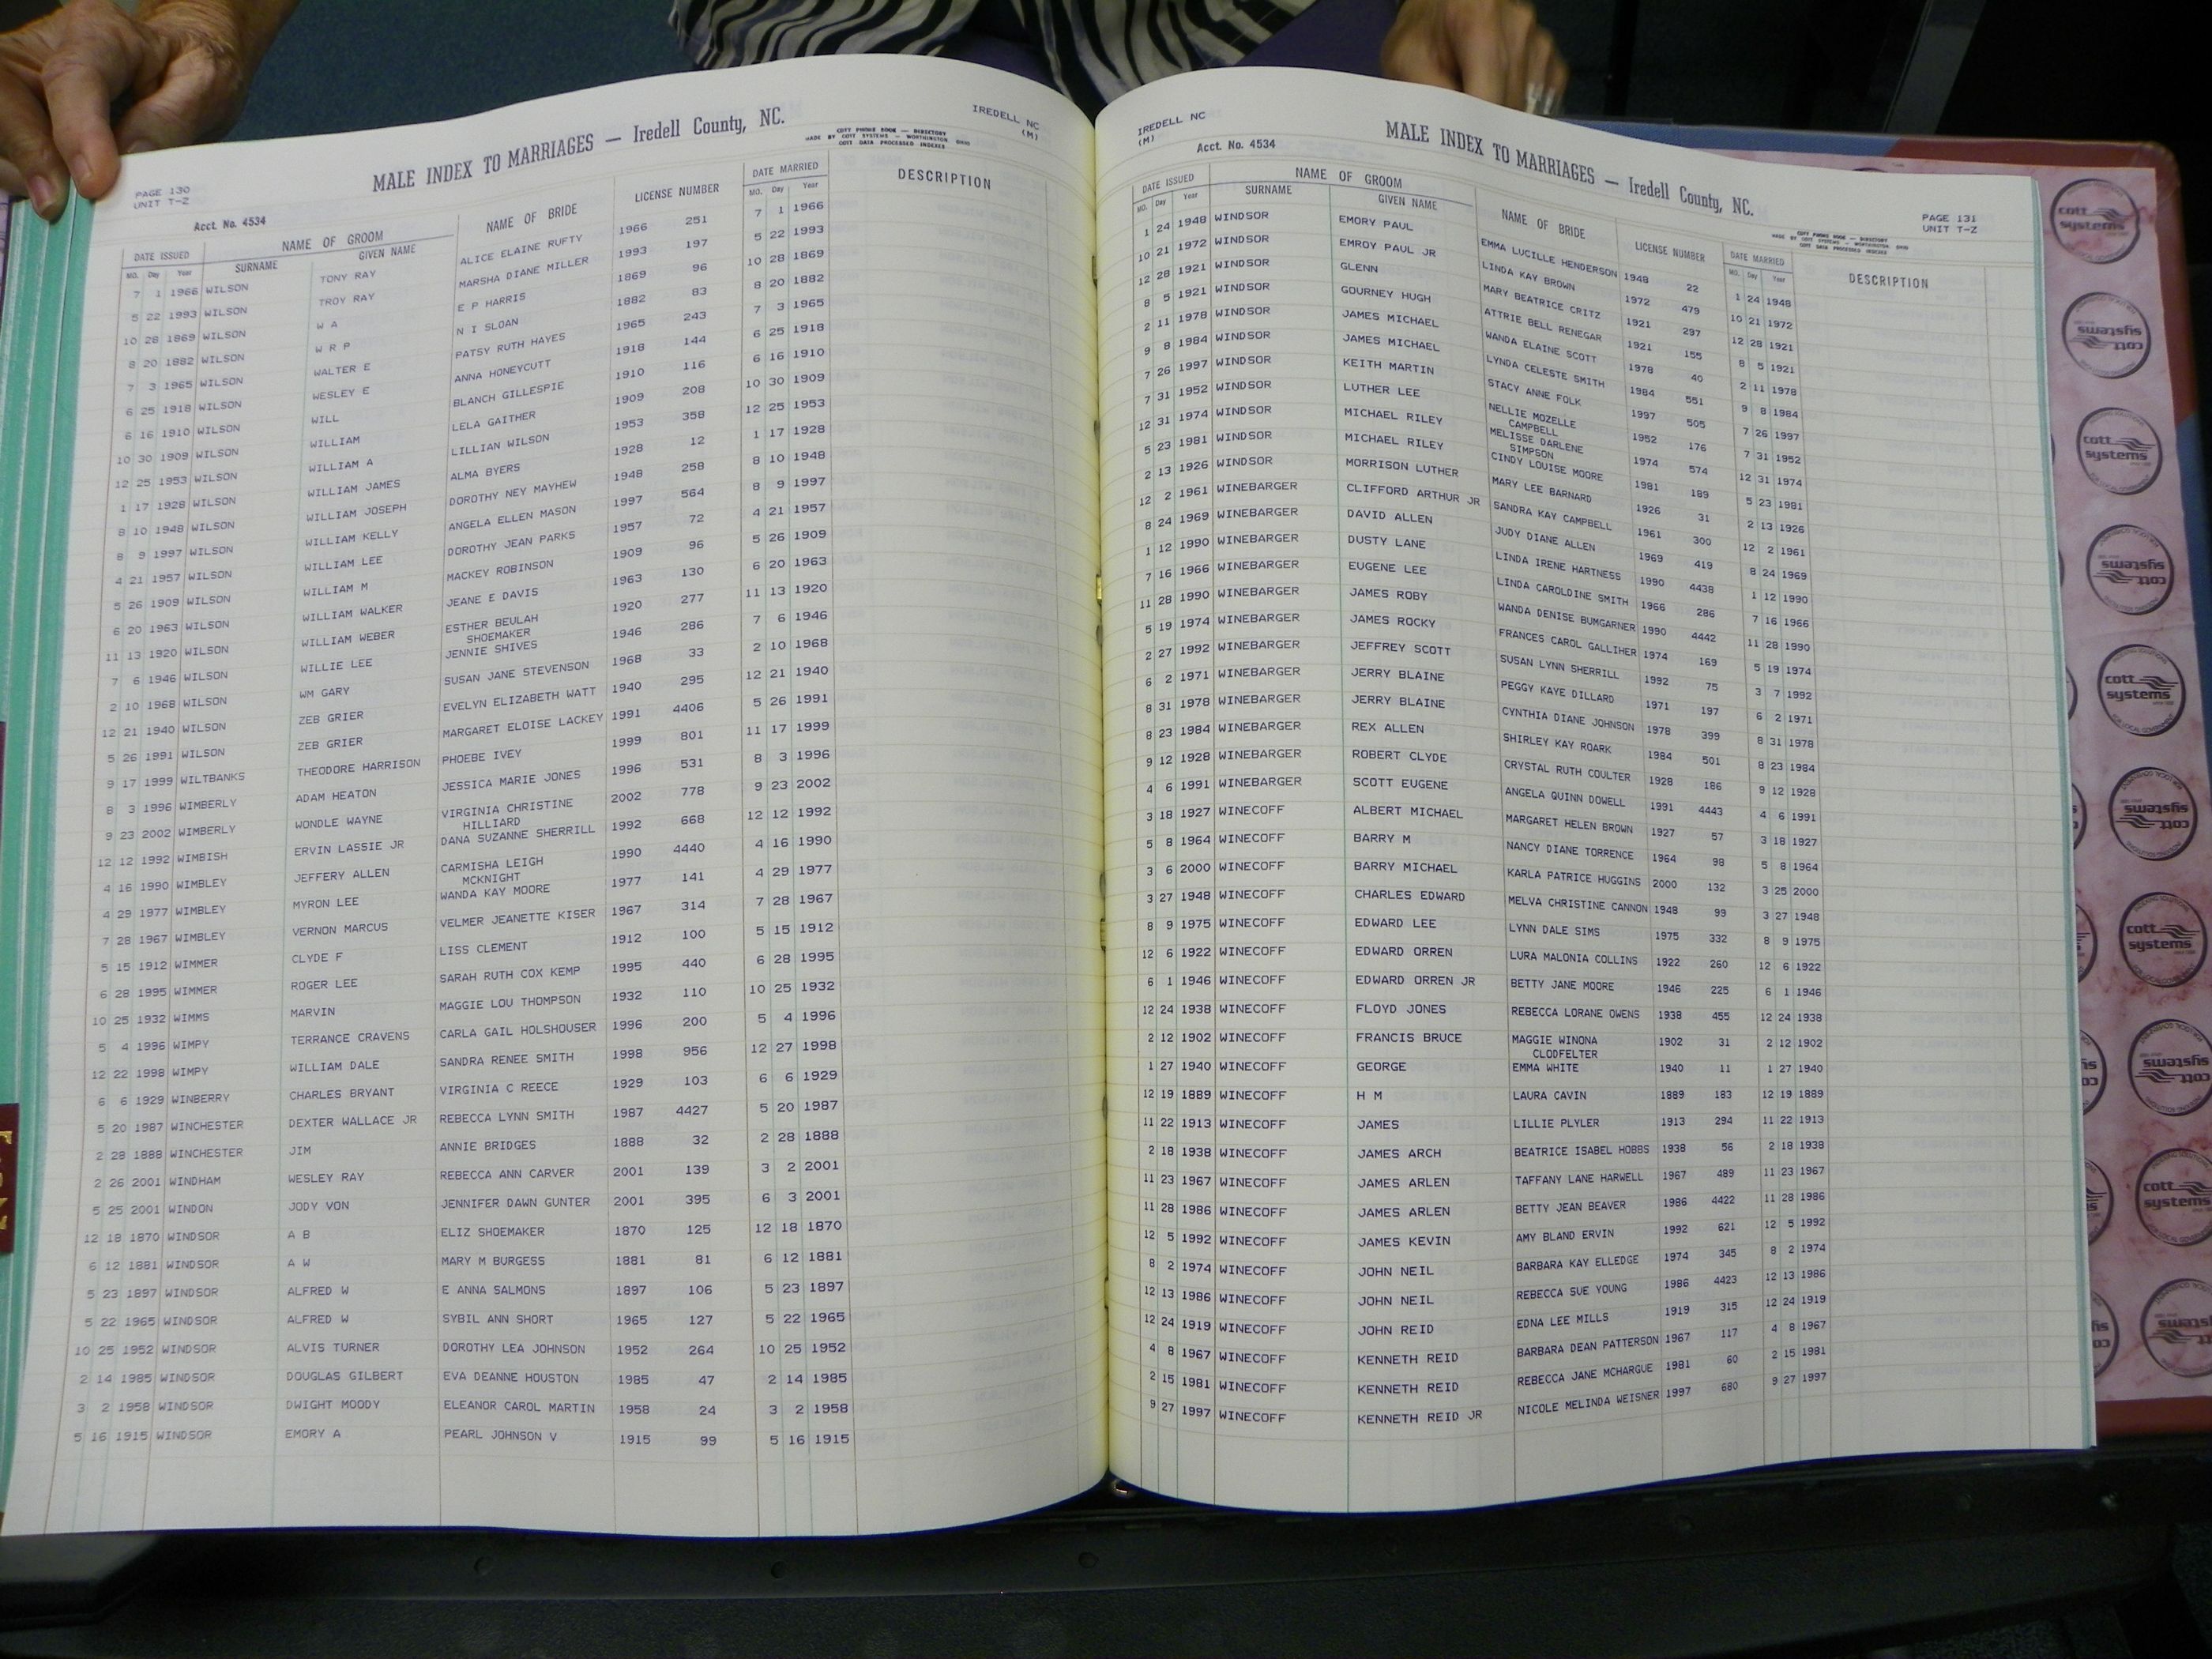 IREDELL NC
(M)
MALE INDEX TO MARRIAGES — Iredell County, NC.
COTT PHONE BOOK — DIRECTORY
MADE BY COTT SYSTEMS — WORTHINGTON OHIO
COTT DATA PROCESSED INDEXES
PAGE 130
UNIT T-Z
Acct. No. 4534
DATE ISSUED NAME OF GROOM NAME OF BRIDE LICENSE NUMBER DATE MARRIED DESCRIPTION
MO. Day Year SURNAME GIVEN NAME MO. Day Year
7 1 1966 WILSON TONY RAY ALICE ELAINE RUFTY 1966 251 7 1 1966
5 22 1993 WILSON TROY RAY MARSHA DIANE MILLER 1993 197 5 22 1993
10 28 1869 WILSON W A E P HARRIS 1869 96 10 28 1869
8 20 1882 WILSON W R P N I SLOAN 1882 83 8 20 1882
7 3 1965 WILSON WALTER E PATSY RUTH HAYES 1965 243 7 3 1965
6 25 1918 WILSON WESLEY E ANNA HONEYCUTT 1918 144 6 25 1918
6 16 1910 WILSON WILL BLANCH GILLESPIE 1910 116 6 16 1910
10 30 1909 WILSON WILLIAM LELA GAITHER 1909 208 10 30 1909
12 25 1953 WILSON WILLIAM A LILLIAN WILSON 1953 358 12 25 1953
1 17 1928 WILSON WILLIAM JAMES ALMA BYERS 1928 12 1 17 1928
8 10 1948 WILSON WILLIAM JOSEPH DOROTHY NEY MAYHEW 1948 258 8 10 1948
8 9 1997 WILSON WILLIAM KELLY ANGELA ELLEN MASON 1997 564 8 9 1997
4 21 1957 WILSON WILLIAM LEE DOROTHY JEAN PARKS 1957 72 4 21 1957
5 26 1909 WILSON WILLIAM M MACKEY ROBINSON 1909 96 5 26 1909
6 20 1963 WILSON WILLIAM WALKER JEANE E DAVIS 1963 130 6 20 1963
11 13 1920 WILSON WILLIAM WEBER ESTHER BEULAH 1920 277 11 13 1920
SHOEMAKER
7 6 1946 WILSON WILLIE LEE JENNIE SHIVES 1946 286 7 6 1946
2 10 1968 WILSON WM GARY SUSAN JANE STEVENSON 1968 33 2 10 1968
12 21 1940 WILSON ZEB GRIER EVELYN ELIZABETH WATT 1940 295 12 21 1940
5 26 1991 WILSON ZEB GRIER MARGARET ELOISE LACKEY 1991 4406 5 26 1991
9 17 1999 WILTBANKS THEODORE HARRISON PHOEBE IVEY 1999 801 11 17 1999
8 3 1996 WIMBERLY ADAM HEATON JESSICA MARIE JONES 1996 531 8 3 1996
9 23 2002 WIMBERLY WONDLE WAYNE VIRGINIA CHRISTINE 2002 778 9 23 2002
HILLIARD
12 12 1992 WIMBISH ERVIN LASSIE JR DANA SUZANNE SHERRILL 1992 668 12 12 1992
4 16 1990 WIMBLEY JEFFERY ALLEN CARMISHA LEIGH 1990 4440 4 16 1990
MCKNIGHT
4 29 1977 WIMBLEY MYRON LEE WANDA KAY MOORE 1977 141 4 29 1977
7 28 1967 WIMBLEY VERNON MARCUS VELMER JEANETTE KISER 1967 314 7 28 1967
5 15 1912 WIMMER CLYDE F LISS CLEMENT 1912 100 5 15 1912
6 28 1995 WIMMER ROGER LEE SARAH RUTH COX KEMP 1995 440 6 28 1995
10 25 1932 WIMMS MARVIN MAGGIE LOU THOMPSON 1932 110 10 25 1932
5 4 1996 WIMPY TERRANCE CRAVENS CARLA GAIL HOLSHOUSER 1996 200 5 4 1996
12 22 1998 WIMPY WILLIAM DALE SANDRA RENEE SMITH 1998 956 12 27 1998
6 6 1929 WINBERRY CHARLES BRYANT VIRGINIA C REECE 1929 103 6 6 1929
5 20 1987 WINCHESTER DEXTER WALLACE JR REBECCA LYNN SMITH 1987 4427 5 20 1987
2 28 1888 WINCHESTER JIM ANNIE BRIDGES 1888 32 2 28 1888
2 26 2001 WINDHAM WESLEY RAY REBECCA ANN CARVER 2001 139 3 2 2001
5 25 2001 WINDON JODY VON JENNIFER DAWN GUNTER 2001 395 6 3 2001
12 18 1870 WINDSOR A B ELIZ SHOEMAKER 1870 125 12 18 1870
6 12 1881 WINDSOR A W MARY M BURGESS 1881 81 6 12 1881
5 23 1897 WINDSOR ALFRED W E ANNA SALMONS 1897 106 5 23 1897
5 22 1965 WINDSOR ALFRED W SYBIL ANN SHORT 1965 127 5 22 1965
10 25 1952 WINDSOR ALVIS TURNER DOROTHY LEA JOHNSON 1952 264 10 25 1952
2 14 1985 WINDSOR DOUGLAS GILBERT EVA DEANNE HOUSTON 1985 47 2 14 1985
3 2 1958 WINDSOR DWIGHT MOODY ELEANOR CAROL MARTIN 1958 24 3 2 1958
5 16 1915 WINDSOR EMORY A PEARL JOHNSON V 1915 99 5 16 1915
IREDELL NC
(M)
Acct. No. 4534
MALE INDEX TO MARRIAGES — Iredell County, NC.
COTT PHONE BOOK — DIRECTORY
MADE BY COTT SYSTEMS — WORTHINGTON OHIO
COTT DATA PROCESSED INDEXES
PAGE 131
UNIT T-Z
DATE ISSUED NAME OF GROOM NAME OF BRIDE LICENSE NUMBER DATE MARRIED DESCRIPTION
MO. Day Year SURNAME GIVEN NAME MO. Day Year
1 24 1948 WINDSOR EMORY PAUL EMMA LUCILLE HENDERSON 1948 22 1 24 1948
10 21 1972 WINDSOR EMROY PAUL JR LINDA KAY BROWN 1972 479 10 21 1972
12 28 1921 WINDSOR GLENN MARY BEATRICE CRITZ 1921 297 12 28 1921
8 5 1921 WINDSOR GOURNEY HUGH ATTRIE BELL RENEGAR 1921 155 8 5 1921
2 11 1978 WINDSOR JAMES MICHAEL WANDA ELAINE SCOTT 1978 40 2 11 1978
9 8 1984 WINDSOR JAMES MICHAEL LYNDA CELESTE SMITH 1984 551 9 8 1984
7 26 1997 WINDSOR KEITH MARTIN STACY ANNE FOLK 1997 505 7 26 1997
7 31 1952 WINDSOR LUTHER LEE NELLIE MOZELLE 1952 176 7 31 1952
CAMPBELL
12 31 1974 WINDSOR MICHAEL RILEY MELISSE DARLENE 1974 574 12 31 1974
SIMPSON
5 23 1981 WINDSOR MICHAEL RILEY CINDY LOUISE MOORE 1981 189 5 23 1981
2 13 1926 WINDSOR MORRISON LUTHER MARY LEE BARNARD 1926 31 2 13 1926
12 2 1961 WINEBARGER CLIFFORD ARTHUR JR SANDRA KAY CAMPBELL 1961 300 12 2 1961
8 24 1969 WINEBARGER DAVID ALLEN JUDY DIANE ALLEN 1969 419 8 24 1969
1 12 1990 WINEBARGER DUSTY LANE LINDA IRENE HARTNESS 1990 4438 1 12 1990
7 16 1966 WINEBARGER EUGENE LEE LINDA CAROLDINE SMITH 1966 286 7 16 1966
11 28 1990 WINEBARGER JAMES ROBY WANDA DENISE BUMGARNER 1990 4442 11 28 1990
5 19 1974 WINEBARGER JAMES ROCKY FRANCES CAROL GALLIHER 1974 169 5 19 1974
2 27 1992 WINEBARGER JEFFREY SCOTT SUSAN LYNN SHERRILL 1992 75 3 7 1992
6 2 1971 WINEBARGER JERRY BLAINE PEGGY KAYE DILLARD 1971 197 6 2 1971
8 31 1978 WINEBARGER JERRY BLAINE CYNTHIA DIANE JOHNSON 1978 399 8 31 1978
8 23 1984 WINEBARGER REX ALLEN SHIRLEY KAY ROARK 1984 501 8 23 1984
9 12 1928 WINEBARGER ROBERT CLYDE CRYSTAL RUTH COULTER 1928 186 9 12 1928
4 6 1991 WINEBARGER SCOTT EUGENE ANGELA QUINN DOWELL 1991 4443 4 6 1991
3 18 1927 WINECOFF ALBERT MICHAEL MARGARET HELEN BROWN 1927 57 3 18 1927
5 8 1964 WINECOFF BARRY M NANCY DIANE TORRENCE 1964 98 5 8 1964
3 6 2000 WINECOFF BARRY MICHAEL KARLA PATRICE HUGGINS 2000 132 3 25 2000
3 27 1948 WINECOFF CHARLES EDWARD MELVA CHRISTINE CANNON 1948 99 3 27 1948
8 9 1975 WINECOFF EDWARD LEE LYNN DALE SIMS 1975 332 8 9 1975
12 6 1922 WINECOFF EDWARD ORREN LURA MALONIA COLLINS 1922 260 12 6 1922
6 1 1946 WINECOFF EDWARD ORREN JR BETTY JANE MOORE 1946 225 6 1 1946
12 24 1938 WINECOFF FLOYD JONES REBECCA LORANE OWENS 1938 455 12 24 1938
2 12 1902 WINECOFF FRANCIS BRUCE MAGGIE WINONA 1902 31 2 12 1902
CLODFELTER
1 27 1940 WINECOFF GEORGE EMMA WHITE 1940 11 1 27 1940
12 19 1889 WINECOFF H M LAURA CAVIN 1889 183 12 19 1889
11 22 1913 WINECOFF JAMES LILLIE PLYLER 1913 294 11 22 1913
2 18 1938 WINECOFF JAMES ARCH BEATRICE ISABEL HOBBS 1938 56 2 18 1938
11 23 1967 WINECOFF JAMES ARLEN TAFFANY LANE HARWELL 1967 489 11 23 1967
11 28 1986 WINECOFF JAMES ARLEN BETTY JEAN BEAVER 1986 4422 11 28 1986
12 5 1992 WINECOFF JAMES KEVIN AMY BLAND ERVIN 1992 621 12 5 1992
8 2 1974 WINECOFF JOHN NEIL BARBARA KAY ELLEDGE 1974 345 8 2 1974
12 13 1986 WINECOFF JOHN NEIL REBECCA SUE YOUNG 1986 4423 12 13 1986
12 24 1919 WINECOFF JOHN REID EDNA LEE MILLS 1919 315 12 24 1919
4 8 1967 WINECOFF KENNETH REID BARBARA DEAN PATTERSON 1967 117 4 8 1967
2 15 1981 WINECOFF KENNETH REID REBECCA JANE MCHARGUE 1981 60 2 15 1981
9 27 1997 WINECOFF KENNETH REID JR NICOLE MELINDA WEISNER 1997 680 9 27 1997
cott systems
cott systems
cott systems
cott systems
cott systems
cott systems
cott systems
cott systems
cott systems
cott systems